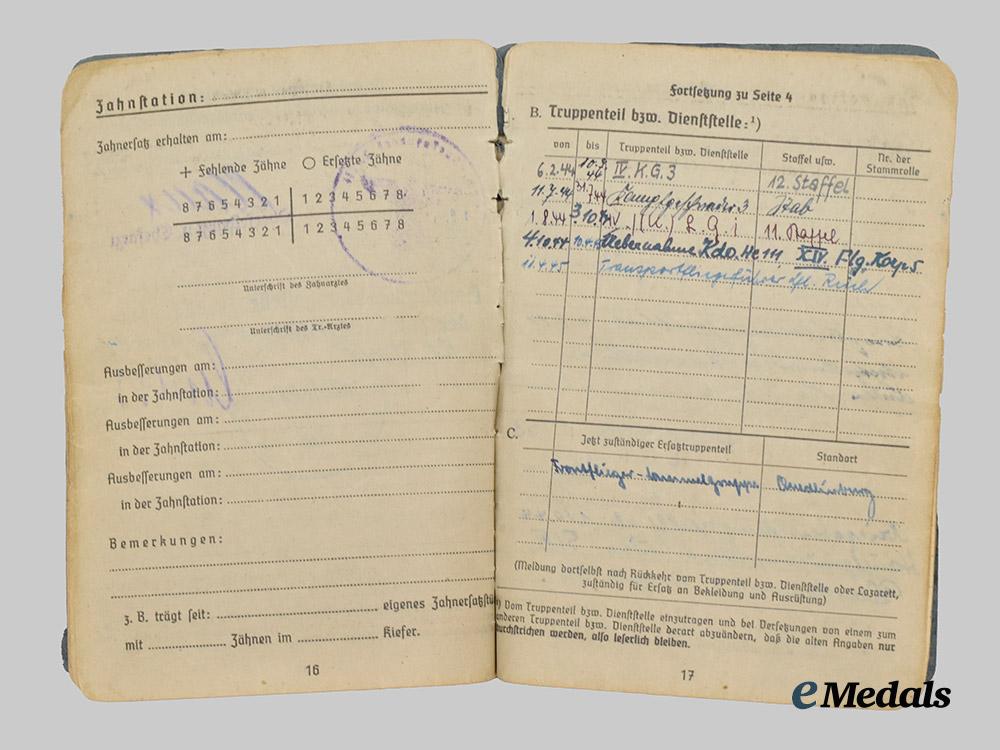 Zahnstation:
Zahnersatz erhalten am:
+ Fehlende Zähne O Ersetzte Zähne
8 7 6 5 4 3 2 1 | 1 2 3 4 5 6 7 8
8 7 6 5 4 3 2 1 | 1 2 3 4 5 6 7 8
Unterschrift des Zahnarztes
Unterschrift des Tr.-Arztes
Ausbesserungen am:
in der Zahnstation:
Ausbesserungen am:
in der Zahnstation:
Ausbesserungen am:
in der Zahnstation:
Bemerkungen:
z. B. trägt seit: eigenes Zahnersatzstü
mit Zähnen im Kiefer.
16
Fortsetzung zu Seite 4
B. Truppenteil bzw. Dienststelle:¹)
von bis Truppenteil bzw. Dienststelle Staffel usw. Nr. der Stammrolle
6.2.44 10.7.44 IV. K.G. 3 12. Staffel
11.7.44 31.7.44 Kampfgeschwader 3 Stab
1.8.44 3.10.44 11. Staffel
4.10.44 Übernahme Kdo. He 111 XIV. Flg. Korps
11.4.45
C. Jetzt zuständiger Ersatztruppenteil Standort
Frontflieger-Sammelgruppe Quedlinburg
(Meldung dortselbst nach Rückkehr vom Truppenteil bzw. Dienststelle oder Lazarett,
zuständig für Ersatz an Bekleidung und Ausrüstung)
¹) Vom Truppenteil bzw. Dienststelle einzutragen und bei Versetzungen von einem zum
anderen Truppenteil bzw. Dienststelle derart abzuändern, daß die alten Angaben nur
durchstrichen werden, also leserlich bleiben.
17
eMedals